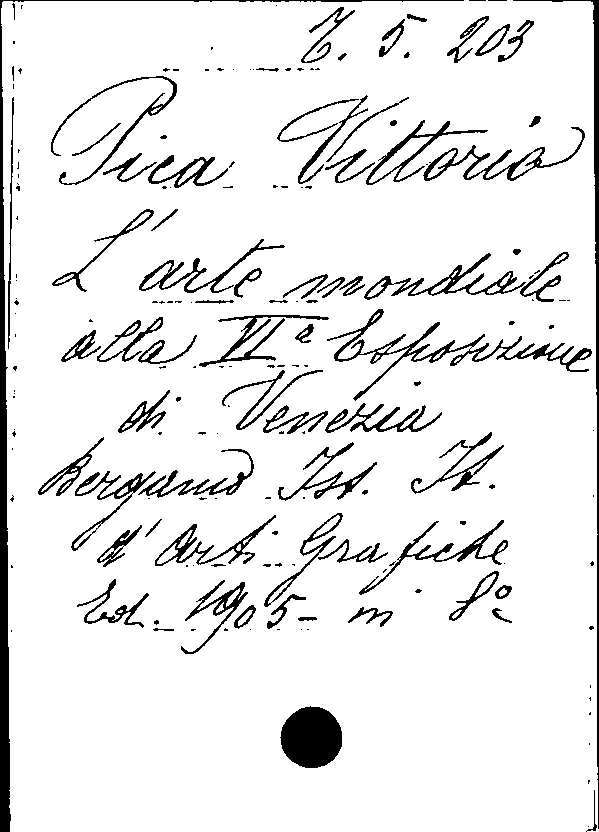 7. 5. 203
Pica Vittorio
L'arte mondiale
alla VIª Esposizione
di Venezia
Bergamo Ist. It.
d'Arti Grafiche
Ed. 1905 - in 8º